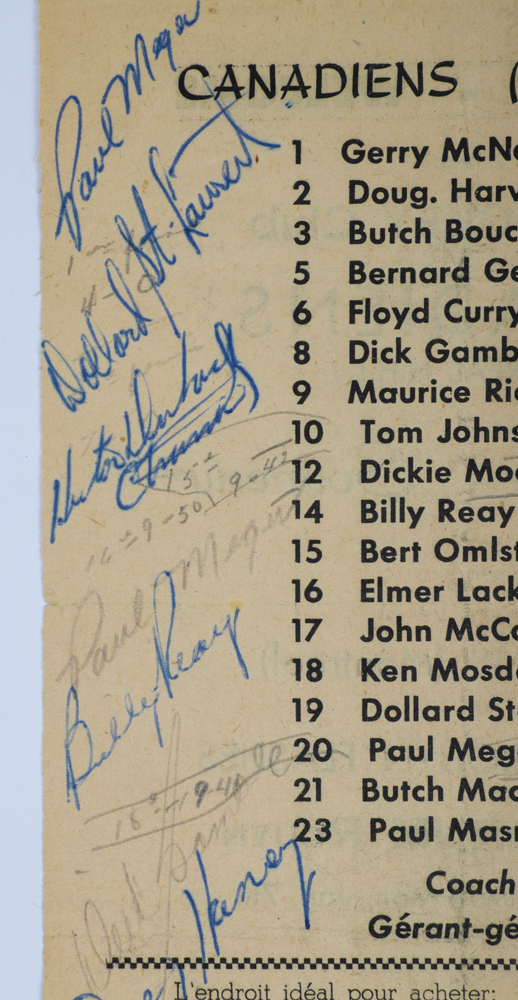 Paul Meger
CANADIENS (
Dollard St. Laurent
1 Gerry McN
2 Doug. Harv
3 Butch Bouc
5 Bernard Ge
6 Floyd Curry
8 Dick Gamb
9 Maurice Ri
10 Tom Johns
12 Dickie Moo
14 Billy Reay
15 Bert Omlst
16 Elmer Lack
17 John McCo
18 Ken Mosde
19 Dollard St
20 Paul Meg
21 Butch Mac
23 Paul Masn
Coach
Gérant-gé
Hector Dubois
15 9-42
16-9-50
Paul Meger
Billy Reay
18-1940
Harvey
L'endroit idéal pour acheter: